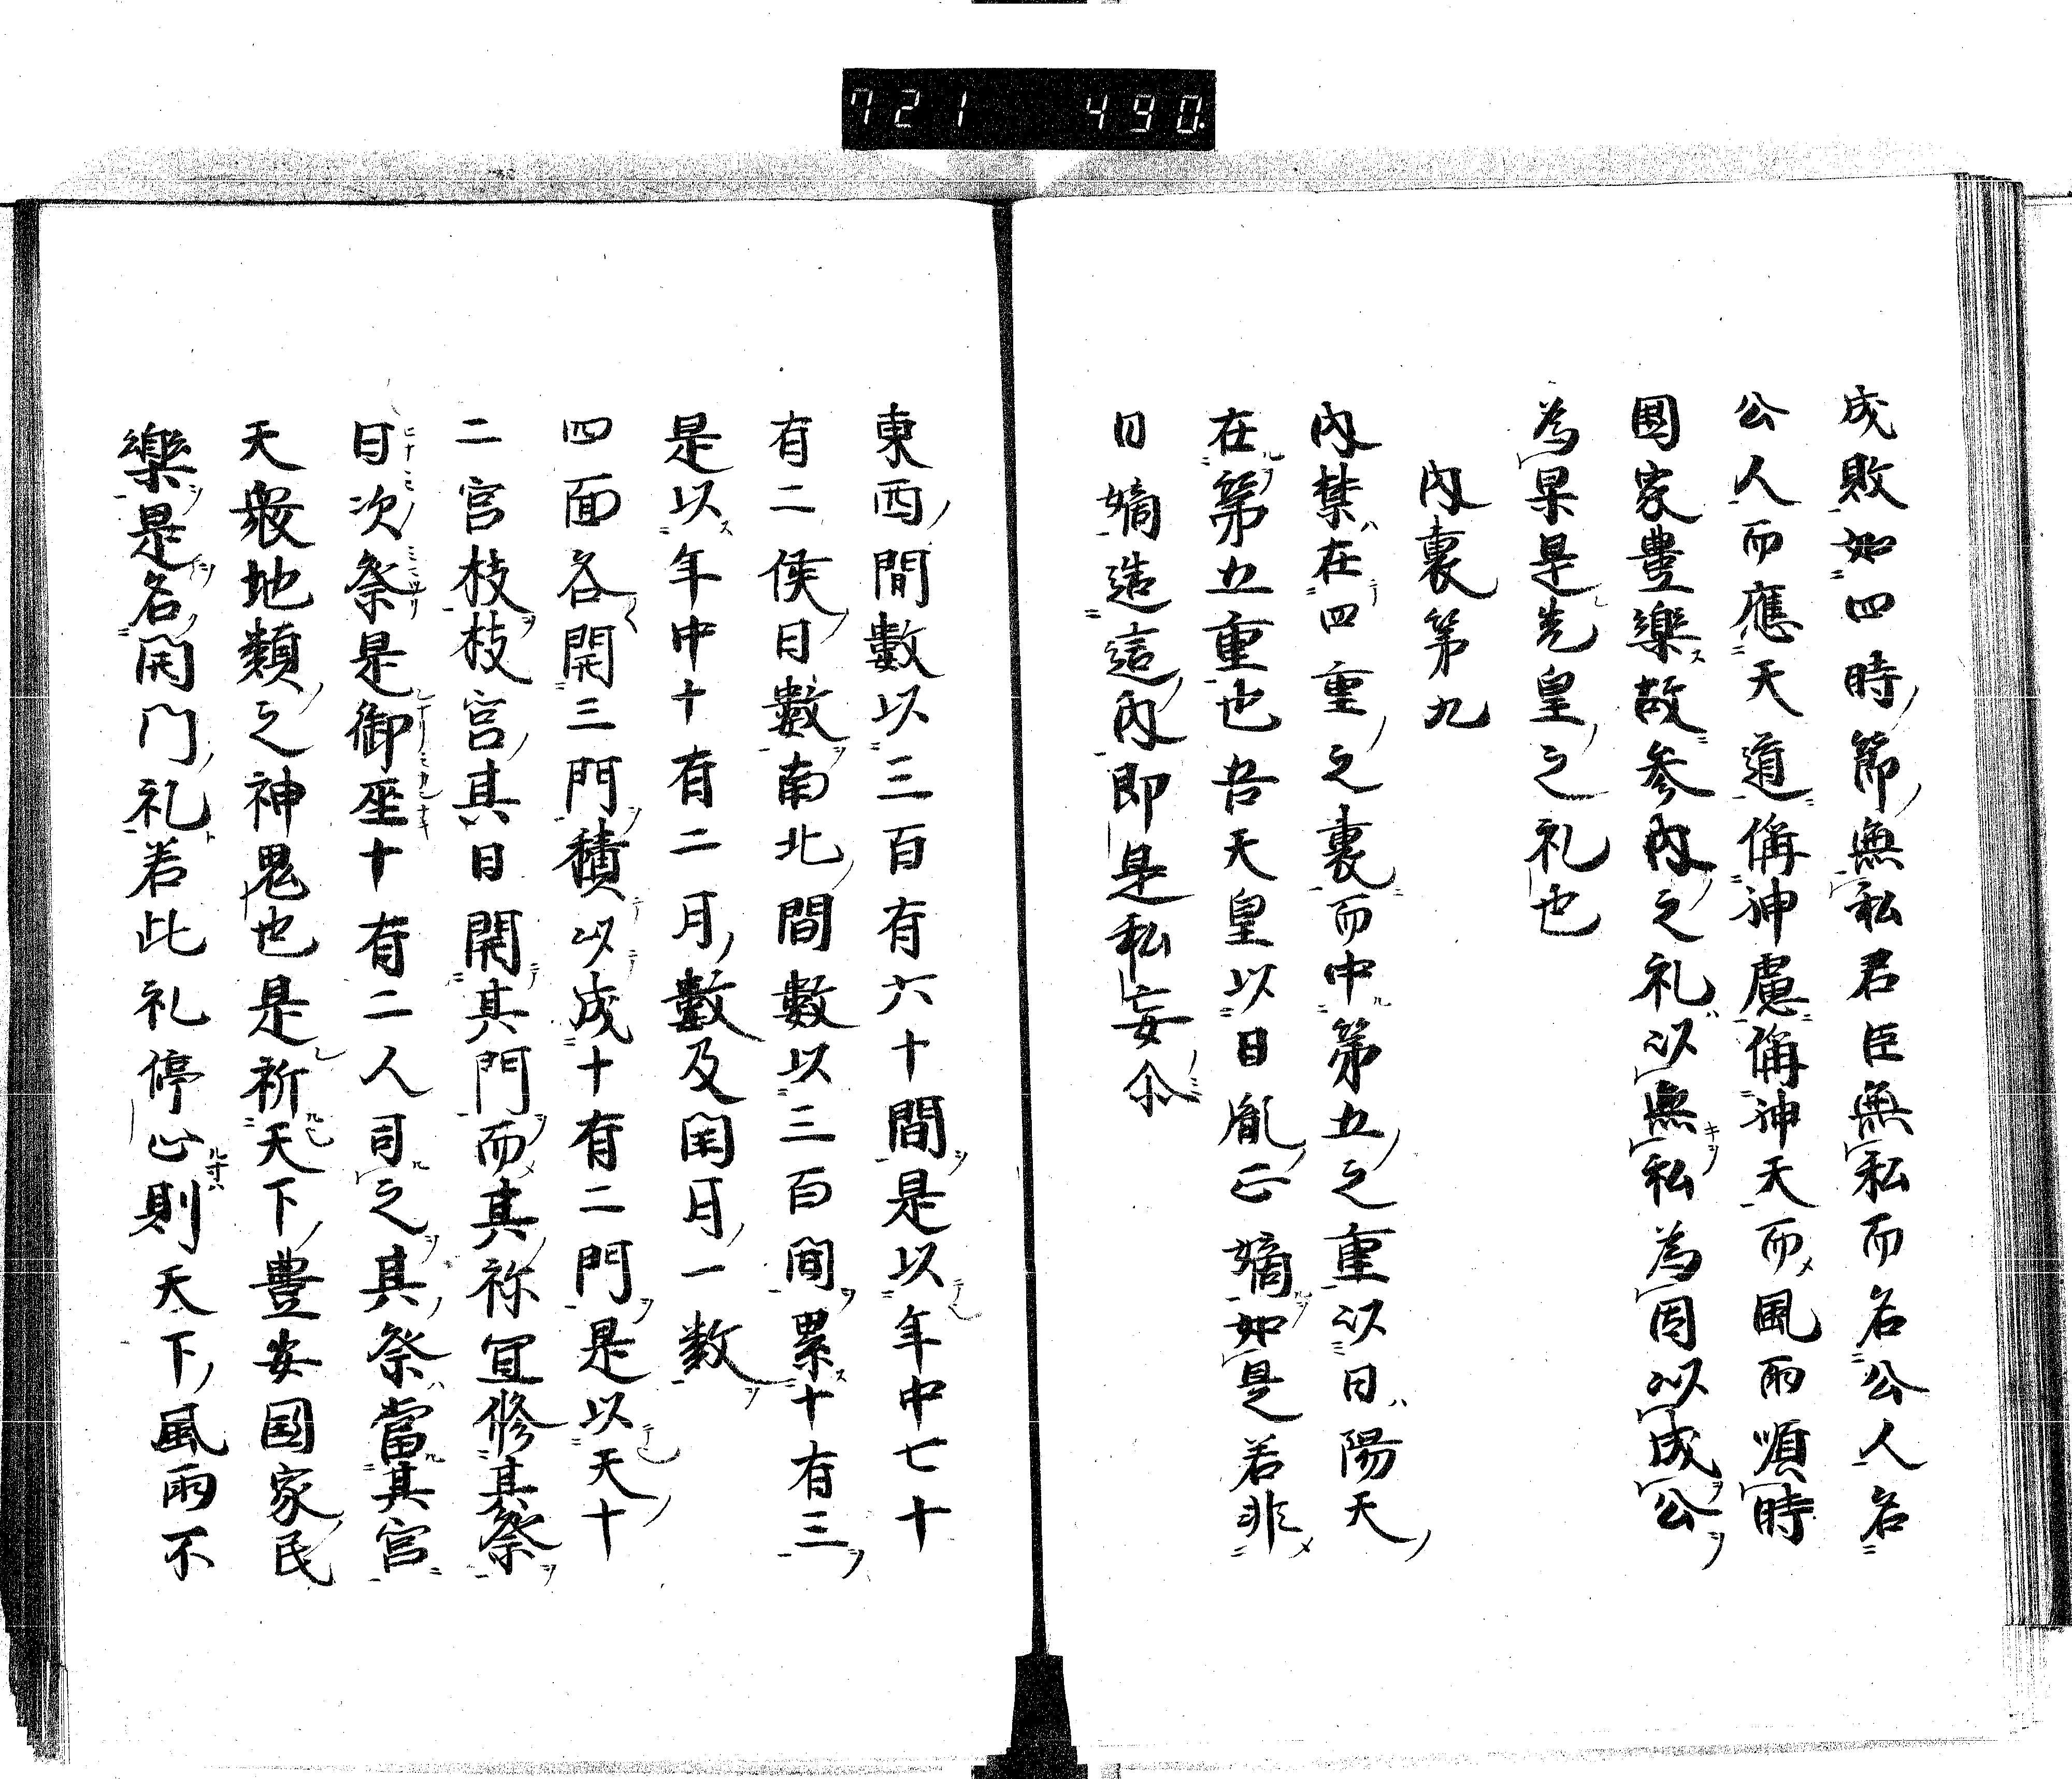 721 490
成敗如四時節無私君臣無私而名公人名
公人而應天道偁神慮偁神天而風雨順時
國家豊樂故參內之礼以無私為因以成公
為果是先皇之礼也
內裏第九
內禁在四重之裏而中第五之重以日陽天
在第五重也吾天皇以日胤正嫡如是若非
日嫡造這內即是私妄尒
東西間數以三百有六十間是以年中七十
有二候日數南北間數以三百間累十有三
是以年中十有二月數及閏月一數
四面各開三門積以成十有二門是以天十
二宮枝枝宮其日開其門而其祢宜修其祭
日次祭是御座十有二人司之其祭當其宮
天衆地類之神鬼也是祈天下豊安国家民
樂是名開門礼若此礼停止則天下風雨不